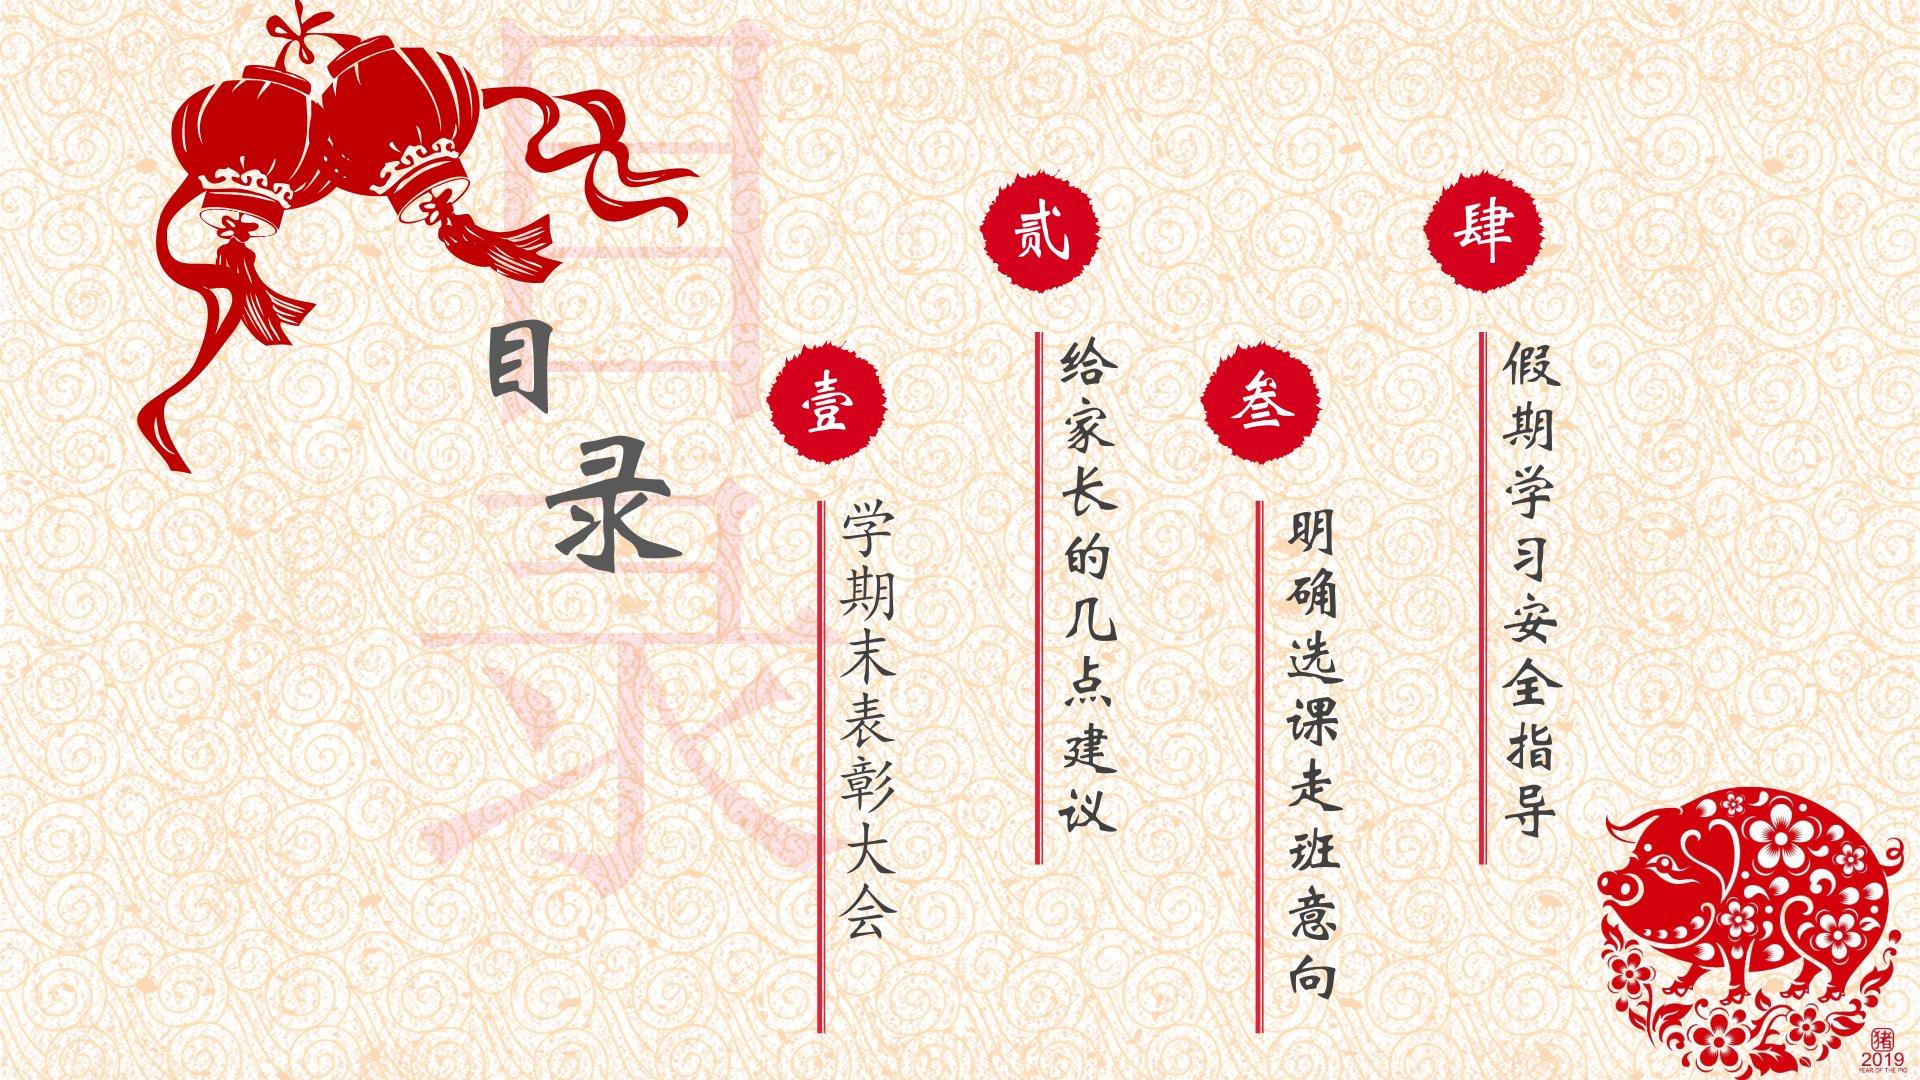 目录
壹
学期末表彰大会
贰
给家长的几点建议
叁
明确选课走班意向
肆
假期学习安全指导
猪
2019
YEAR OF THE PIG